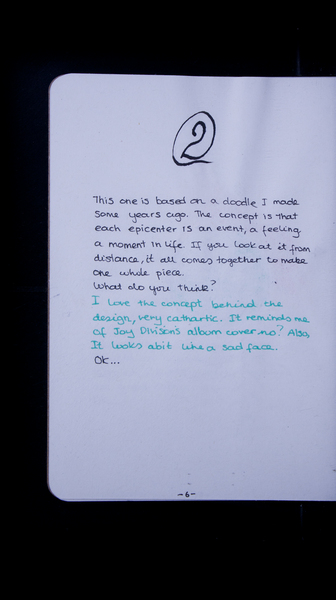 2
This one is based on a doodle I made
some years ago. The concept is that
each epicenter is an event, a feeling
a moment in life. If you look at it from
distance, it all comes together to make
one whole piece.
What do you think?
I love the concept behind the
design, very cathartic. It reminds me
of Joy Division's album cover, no? Also,
It looks abit like a sad face.
Ok...
-6-